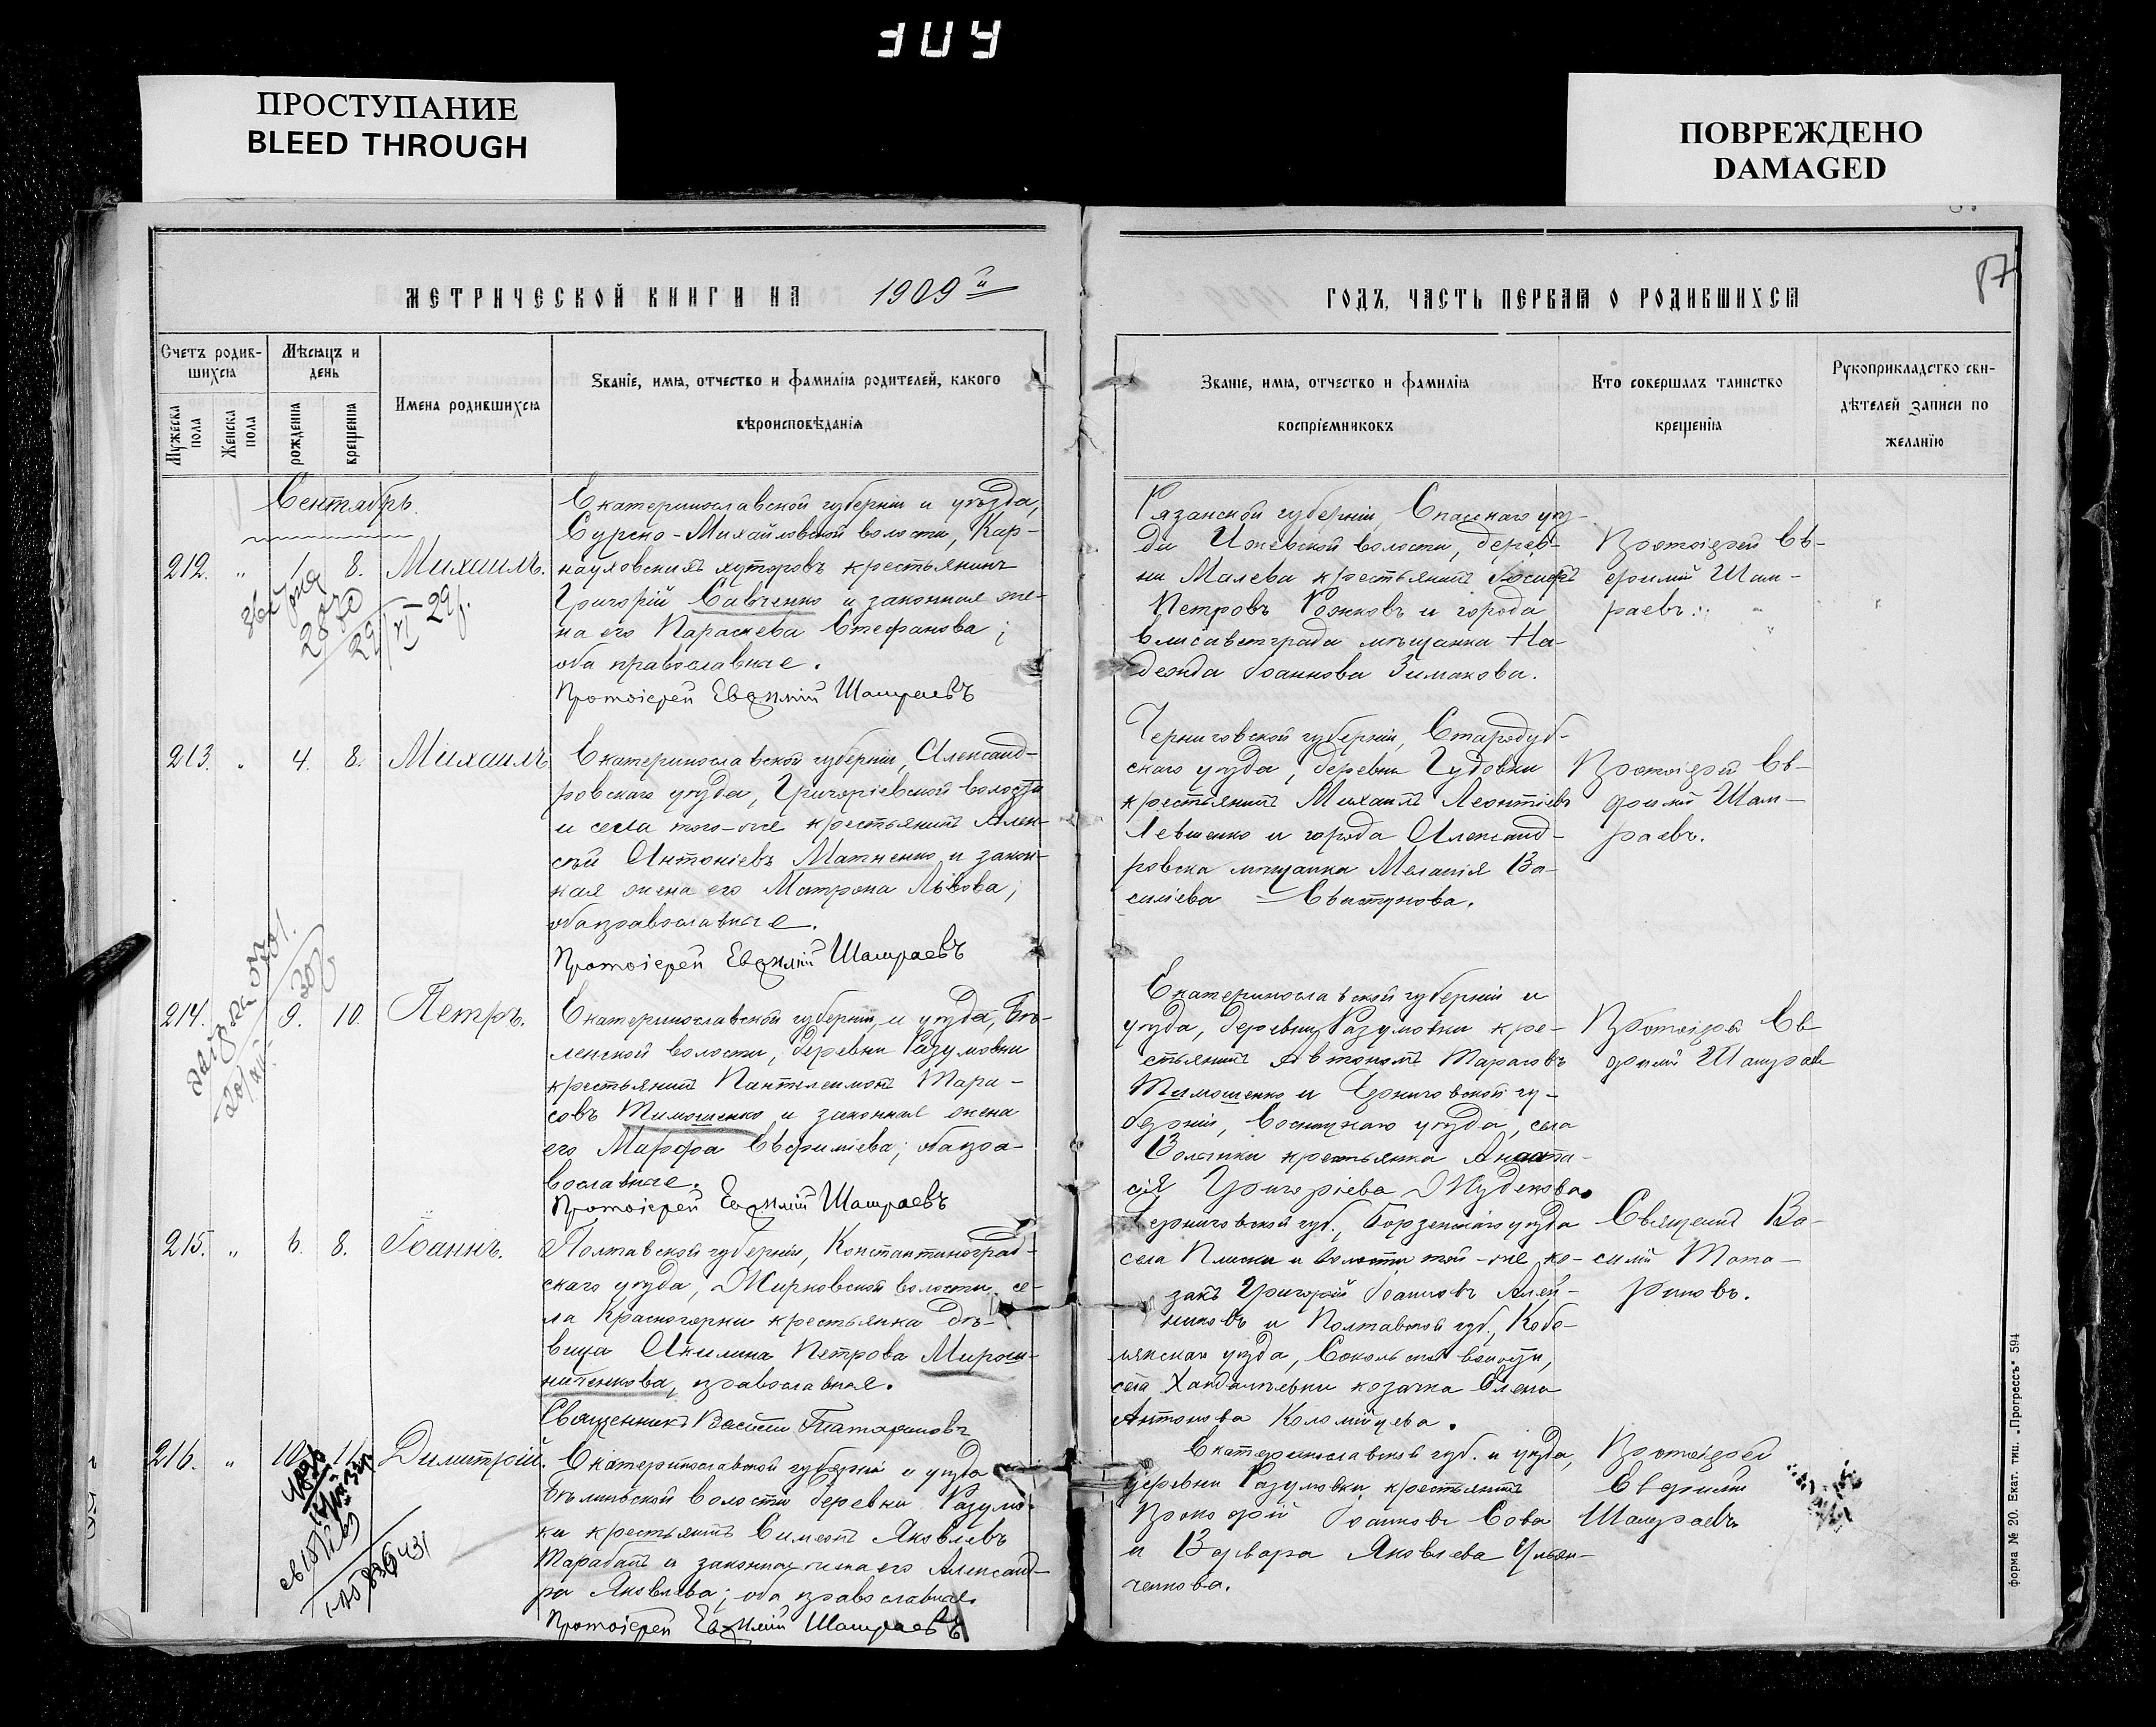 ПРОСТУПАНИЕ
BLEED THROUGH
ПОВРЕЖДЕНО
DAMAGED
87
МЕТРИЧЕСКОЙ КНИГИ НА 1909й
ГОДЪ, ЧАСТЬ ПЕРВАЯ О РОДИВШИХСЯ
Счетъ родив-
шихся
Мужеска пола
Женска пола
Мѣсяцъ и
день
рожденія
крещенія
Имена родившихся
Званіе, имя, отчество и фамилія родителей, какого
вѣроисповѣданія
Званіе, имя, отчество и фамилія
воспріемниковъ
Кто совершалъ таинство
крещенія
Рукоприкладство сви-
дѣтелей записи по
желанію
Сентябрь
212. " 1. 8. Михаилъ.
Екатеринославской губерніи и уѣзда,
Сурско-Михайловской волости, Кар-
науловскихъ хуторовъ крестьянинъ
Григорій Савченко и законная же-
на его Параскева Стефанова;
оба православные.
Протоіерей Евѳимій Шамраевъ
Рязанской губерніи, Спасскаго уѣз-
да волости, дерев-
ни Малева крестьянинъ Іосифъ
Петровъ Рожковъ и города
Елисаветграда мѣщанка На-
дежда Іоаннова Зимакова.
Протоіерей Ев-
фимій Шам-
раевъ.
213. " 4. 8. Михаилъ
Екатеринославской губерніи, Александ-
ровскаго уѣзда, Григоріевской волости
и села того-же крестьянинъ Алек-
сѣй Антоніевъ Матненко и закон-
ная жена его Матрона Львова;
оба православные.
Протоіерей Евѳимій Шамраевъ
Черниговской губерніи, Стародуб-
скаго уѣзда, деревни Гудовки
крестьянинъ Михаилъ Леонтіевъ
Левшенко и города Александ-
ровска мѣщанка Меланія Ва-
силіева Свистунова.
Протоіерей Ев-
фимій Шам-
раевъ.
214. 9. 10. Петръ.
Екатеринославской губерніи, и уѣзда, Бѣ-
ленской волости, деревни Разумовки
крестьянинъ Пантелеимонъ Тара-
совъ Тимошенко и законная жена
его Марфа Евфиміева; оба пра-
вославные.
Протоіерей Евѳимій Шамраевъ
Екатеринославской губерніи и
уѣзда, деревни Разумовки кре-
стьянинъ Автономъ Тарасовъ
Тимошенко и Черниговской гу-
берніи, Сосницкаго уѣзда, села
Волынки крестьянка Анаста-
сія Григоріева Жуденкова.
Протоіерей Ев
фимій Шамраев
215. " 6. 8. Іоаннъ.
Полтавской губерніи, Константиноград-
скаго уѣзда, Жирковской волости, се-
ла Красногорки крестьянка дѣ-
вица Акилина Петрова Мирош-
ниченкова, православная.
Священникъ Василій Татариновъ
Черниговской губ., Борзенскаго уѣзда
села Плиски и волости той-же ко-
закъ Григорій Іоанновъ Алей-
никовъ и Полтавской губ., Кобе-
лякскаго уѣзда, Сокольской волости,
села Хандалѣевки козачка Елена
Антонова Коломійцева.
Священникъ Ва-
силій Тата-
риновъ.
216. " 10. 11. Димитрій.
Екатеринославской губерніи и уѣзда
Бѣленьской волости деревни Разумов-
ки крестьянинъ Симеонъ Яковлевъ
Тарабанъ и законная жена его Александ-
ра Яковлева; оба православные.
Протоіерей Евѳимій Шамраевъ
Екатеринославской губ. и уѣзда,
деревни Разумовки крестьянинъ
Прокофій Іоанновъ Сова
и Варвара Яковлева Ульян-
ченкова.
Протоіерей
Евфимій
Шамраевъ
форма № 20. Екат. тип. „Прогрессъ" 594